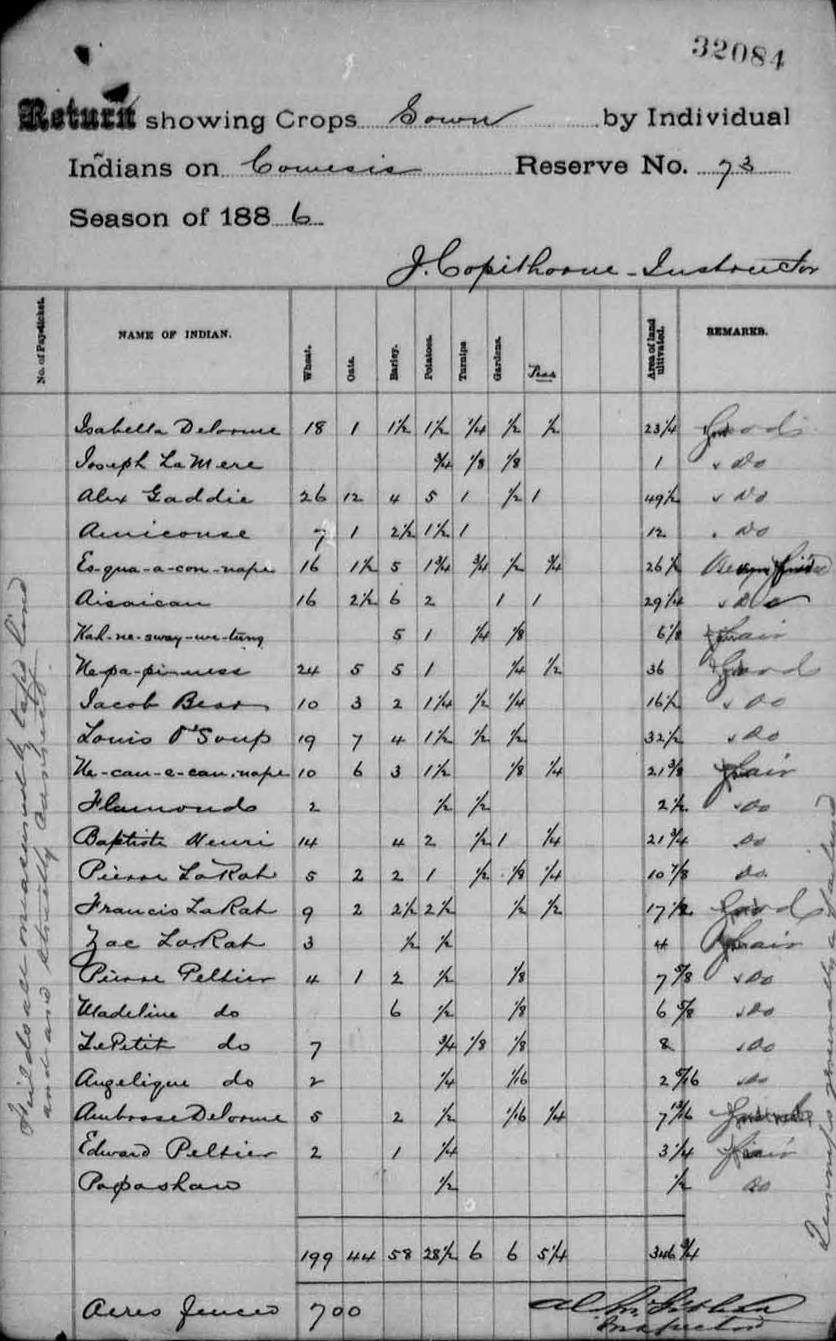 32084
Return showing Crops Sown by Individual
Indians on Cowesis Reserve No. 73
Season of 1886
J. Copithorne - Instructor
No. of Pay-ticket. NAME OF INDIAN. Wheat. Oats. Barley. Potatoes. Turnips Gardens. Peas Area of land ultivated. REMARKS.
Isabella Delorme 18 1 1½ 1½ ¼ ½ ½ 23¼ Good
Joseph LaMere ¾ ⅛ ⅛ 1 " do
Alex Gaddie 26 12 4 5 1 ½ 1 49½ " do
Amiconse 7 1 2½ 1½ 1 12 " do
Es-qua-a-con-nape 16 1½ 5 1¾ ¾ ½ ¾ 26½
Aisaican 16 2½ 6 2 1 1 29¼ " do
Kah-ne-sway-we-tung 5 1 ¼ ⅛ 6⅛ fair
Ne-pa-pi-ness 24 5 5 1 ¼ ½ 36 Good
Jacob Bear 10 3 2 1¼ ½ ¼ 16½ " do
Louis O'Soup 19 7 4 1½ ½ ½ 32½ " do
Ne-can-e-can-nape 10 6 3 1½ ⅛ ¼ 21⅜ fair
Flamonds 2 ½ ½ 2½ " do
Baptiste Henri 14 4 2 ½ 1 ¼ 21¾ do
Pierre LaRat 5 2 2 1 ½ ⅛ ¼ 10⅞ do
Francis LaRat 9 2 2½ 2½ ½ ½ 17½ Good
Zac LaRat 3 ½ ½ 4 fair
Pierre Peltier 4 1 2 ½ ⅛ 7⅝ " do
Madeline do 6 ½ ⅛ 6⅝ " do
LePetit do 7 ¾ ⅛ ⅛ 8 " do
Angelique do 2 ¼ 1/16 2 5/16 " do
Ambrose Delorme 5 2 ½ 1/16 ¼ 7 13/16
Edward Peltier 2 1 ¼ 3¼ fair
Papashaw ½ ½ do
199 44 58 28½ 6 6 5¼ 346¾
Acres fenced 700
Inspector
Fields all measured by tape line
and and strictly correct.